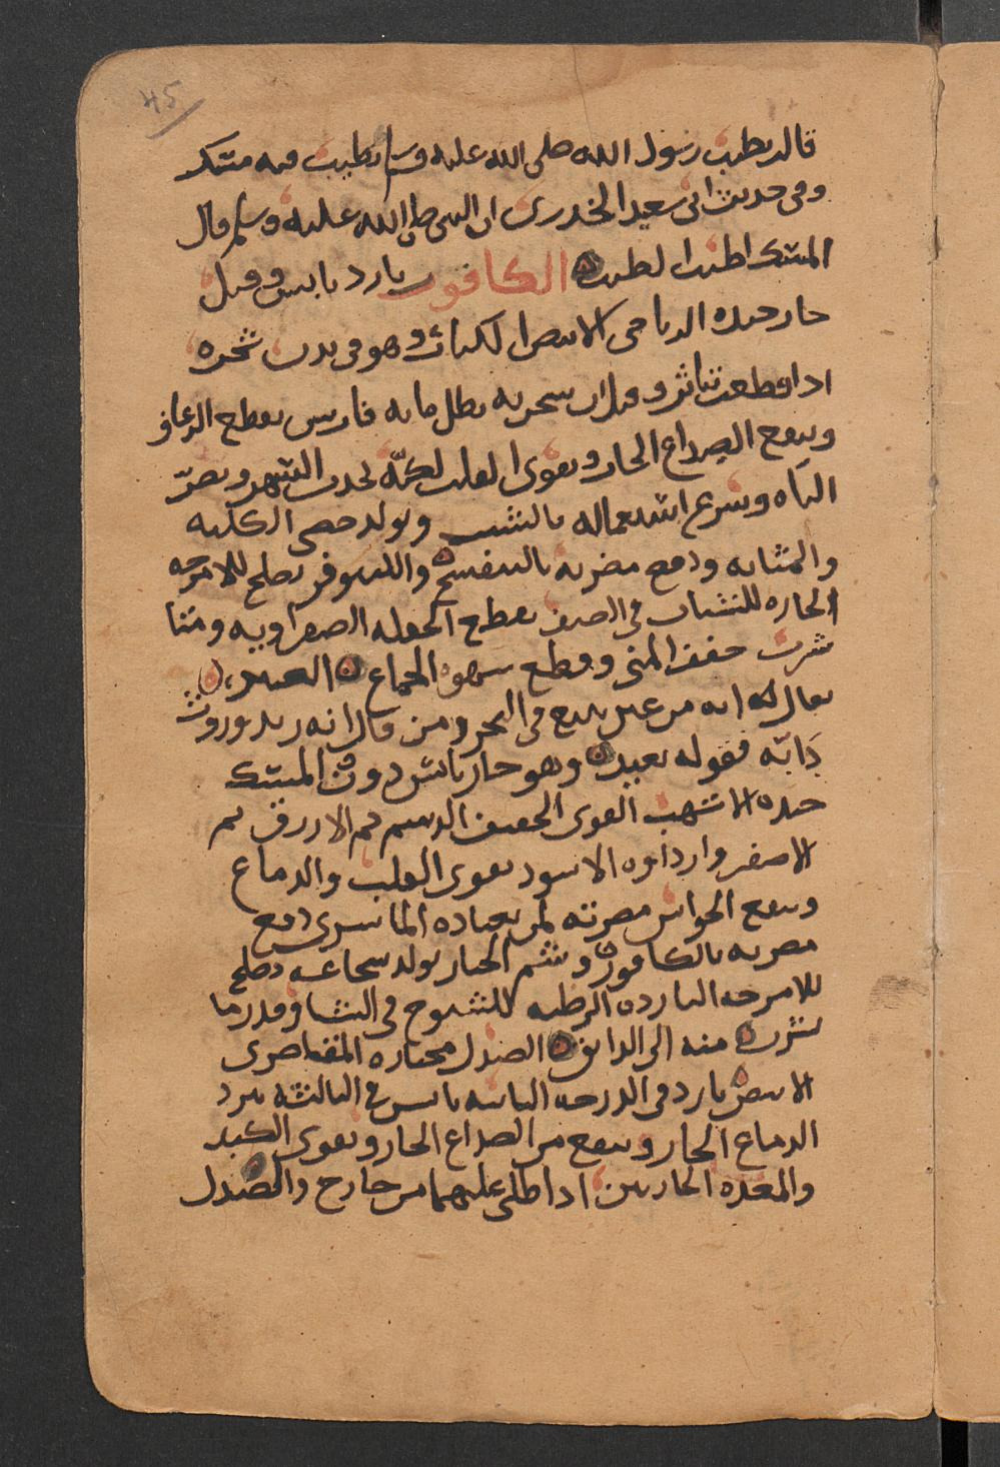 45
قال تطيب رسول الله صلى الله عليه وسلم تطيب فيه مسك
وفي حديث ابي سعيد الخدري ان النبي صلى الله عليه وسلم قال
المسك اطيب الطيب الكافور بارد يابس وقيل
حار جيده الرباحي الابيض الكبار وهو في بدن شجره
اذا قطعت تناثر وقيل ان شجرته تظل مايه فارس يقطع الرعاف
وينفع الصداع الحار ويقوي القلب لكنه يحدث السهر ويضر
الباه ويسرع استعماله بالشيب ويولد حصى الكليه
والمثانه ودفع مضرته بالبنفسج واللينوفر يصلح للامزجه
الحاره للشباب في الصيف يقطع الخلفه الصفراويه ومتا
شرب جفف المني وقطع شهوه الجماع العنبر
يقال انه من عين تنبع في البحر ومن قال انه زبد وروث
دابه فقوله بعيد وهو حار يابس دون المسك
جيده الاشهب القوي الخفيف الدسم ثم الازرق ثم
الاصفر واردأوه الاسود يقوي القلب والدماغ
وينفع الحواس مضرته لمن يعتاده الماشرى دفع
مضرته بالكافور وشم الخيار يولد شجاعه يصلح
للامزجه البارده الرطبه للشيوخ في الشتا وقدر ما
يشرب منه الى الدانق الصندل مختاره المقاصري
الابيض بارد في الدرجه الثانيه يابس في الثالثة يبرد
الدماغ الحار وينفع من الصداع الحار ويقوي الكبد
والمعده الحارتين اذا طلي عليهما من خارج والصندل